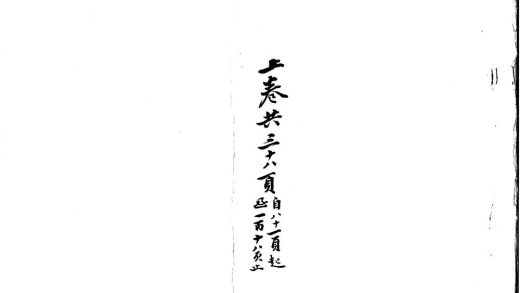 上卷共三十八頁
自八十一頁起
至一百十八頁止